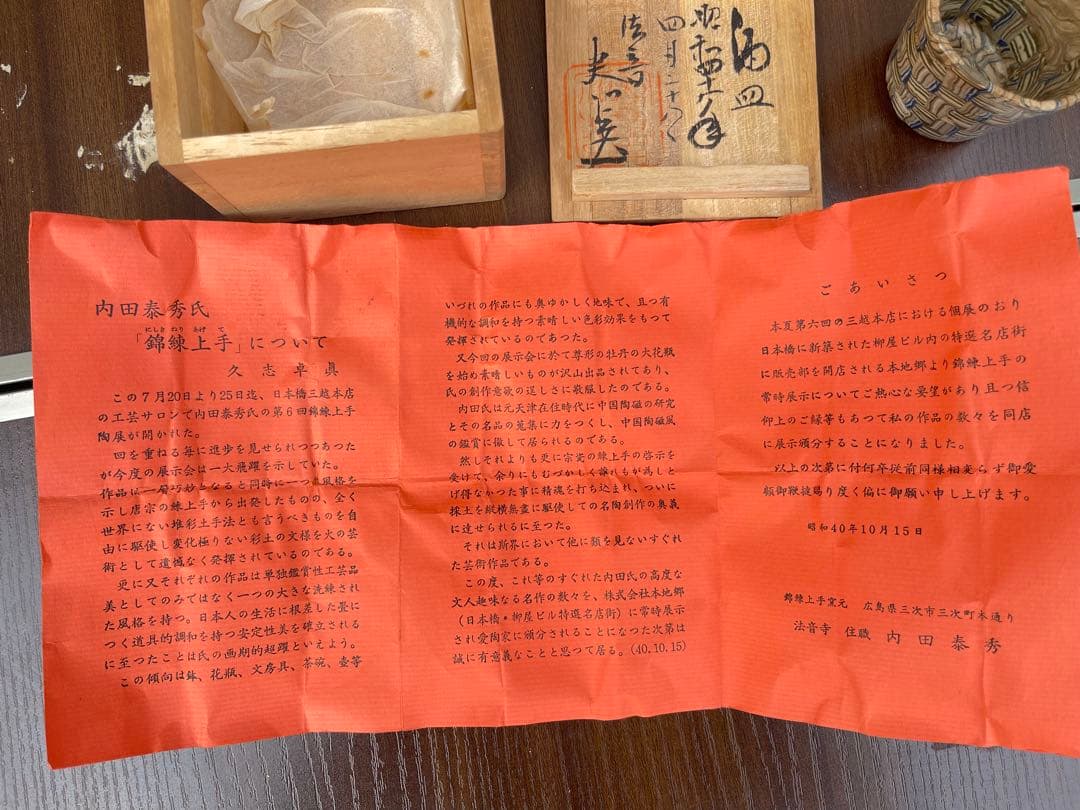 酒皿
四月二十八日
内田泰秀氏
にしき ねり あげ て
「錦練上手」について
久志卓眞
この7月20日より25日迄、日本橋三越本店
の工芸サロンで内田泰秀氏の第6回錦練上手
陶展が開かれた。
回を重ねる毎に進歩を見せられつつあつた
が今度の展示会は一大飛躍を示していた。
作品に一層巧妙となると同時に一つの風格を
示し唐宗の練上手から出発したものの、全く
世界にない堆彩土手法とも言うべきものを自
由に駆使し変化極りない彩土の文様を火の芸
術として遺憾なく発揮されているのである。
更に又それぞれの作品は単独鑑賞性工芸品
美としてのみではなく一つの大きな洗練され
た風格を持つ。日本人の生活に根差した畳に
つく道具的調和を持つ安定性美を確立される
に至つたことは氏の画期的超躍といえよう。
この傾向は鉢、花瓶、文房具、茶碗、壺等
いづれの作品にも奥ゆかしく地味で、且つ有
機的な調和を持つ素晴しい色彩効果をもつて
発揮されているのであつた。
又今回の展示会に於て尊形の牡丹の大花瓶
を始め素晴しいものが沢山出品されてあり、
氏の創作意欲の逞しさに敬服したのである。
内田氏は元天津在住時代に中国陶磁の研究
とその名品の蒐集に力をつくし、中国陶磁風
の鑑賞に徹して居られるのである。
然しそれよりも更に宗瓷の練上手の啓示を
受けて、余りにもむづかしく誰れもが為しと
げ得なかつた事に精魂を打ち込まれ、ついに
採土を縦横無盡に駆使しての名陶創作の奥義
に達せられるに至つた。
それは斯界において他に類を見ないすぐれ
た芸術作品である。
この度、これ等のすぐれた内田氏の高度な
文人趣味なる名作の数々を、株式会社本地郷
(日本橋・柳屋ビル特選名店街)に常時展示
され愛陶家に頒分されることになつた次第は
誠に有意義なことと思つて居る。(40.10.15)
ごあいさつ
本夏第六回の三越本店における個展のおり
日本橋に新築された柳屋ビル内の特選名店街
に販売部を開店される本地郷より錦練上手の
常時展示についてご熱心な要望があり且つ信
仰上のご縁等もあつて私の作品の数々を同店
に展示頒分することになりました。
以上の次第に付何卒従前同様相変らず御愛
顧御鞭撻賜り度く偏に御願い申し上げます。
昭和40年10月15日
錦練上手窯元 広島県三次市三次町本通り
法音寺 住職 内田泰秀